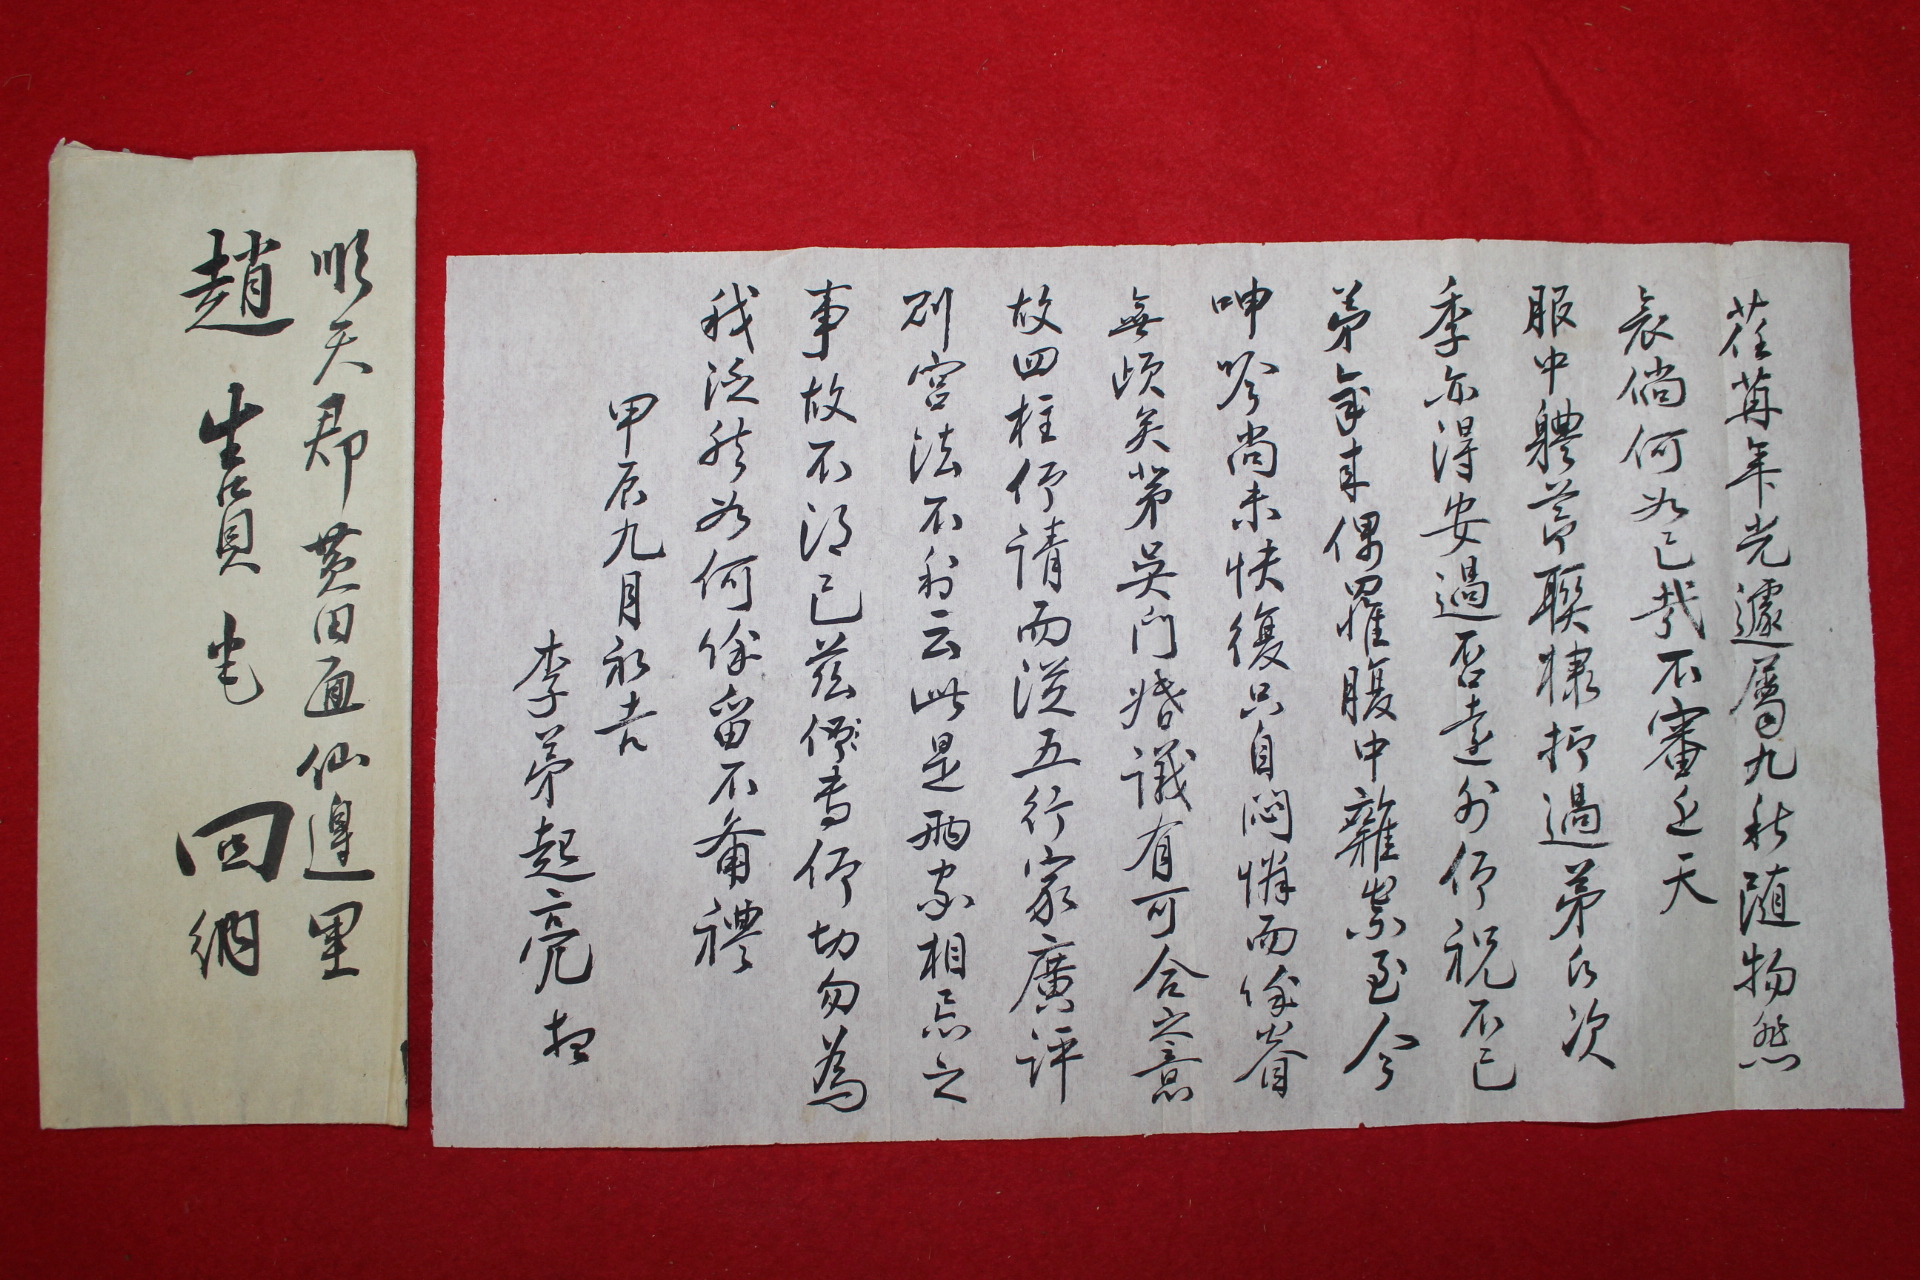 荏苒年光遽屬九秋隨物悠
哀倘何如已哉不審這天
服中軆節聯棣抑過弟氏次
季亦得安過否遠外仰祝不已
弟年來偶罹腹中難祟至今
呻吟尚未快復只自悶憐而餘眷
無頉矣第吳門婚議有可合之意
故四柱仰請而從五行家廣評
則宮法不利云此是兩家相忌之
事故不得已茲備書仰切勿為
我泛然如何餘留不備禮
甲辰九月初吉
李弟起亮拜
順天郡黃田面仙邊里
趙 生員 宅 回納